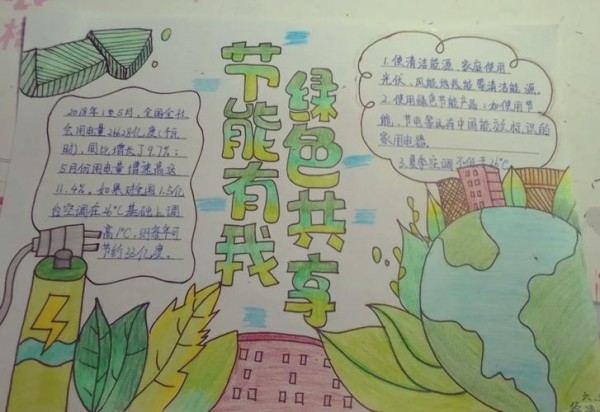 节能有我
绿色共享
2018年1至5月,全国全社
会用电量26628亿度(千瓦
时),同比增长了9.7%;
5月份用电量增速高达
11.4%。如果对全国1.5亿
台空调在26℃基础上调
高1℃,则每年可
节约33亿度。
1.使清洁能源,家庭使用
光伏、风能地热能等清洁能源,
2.使用绿色节能产品:如使用节
能、节电等或有中国能效标识的
家用电器
3.夏季空调不低于26℃
六.